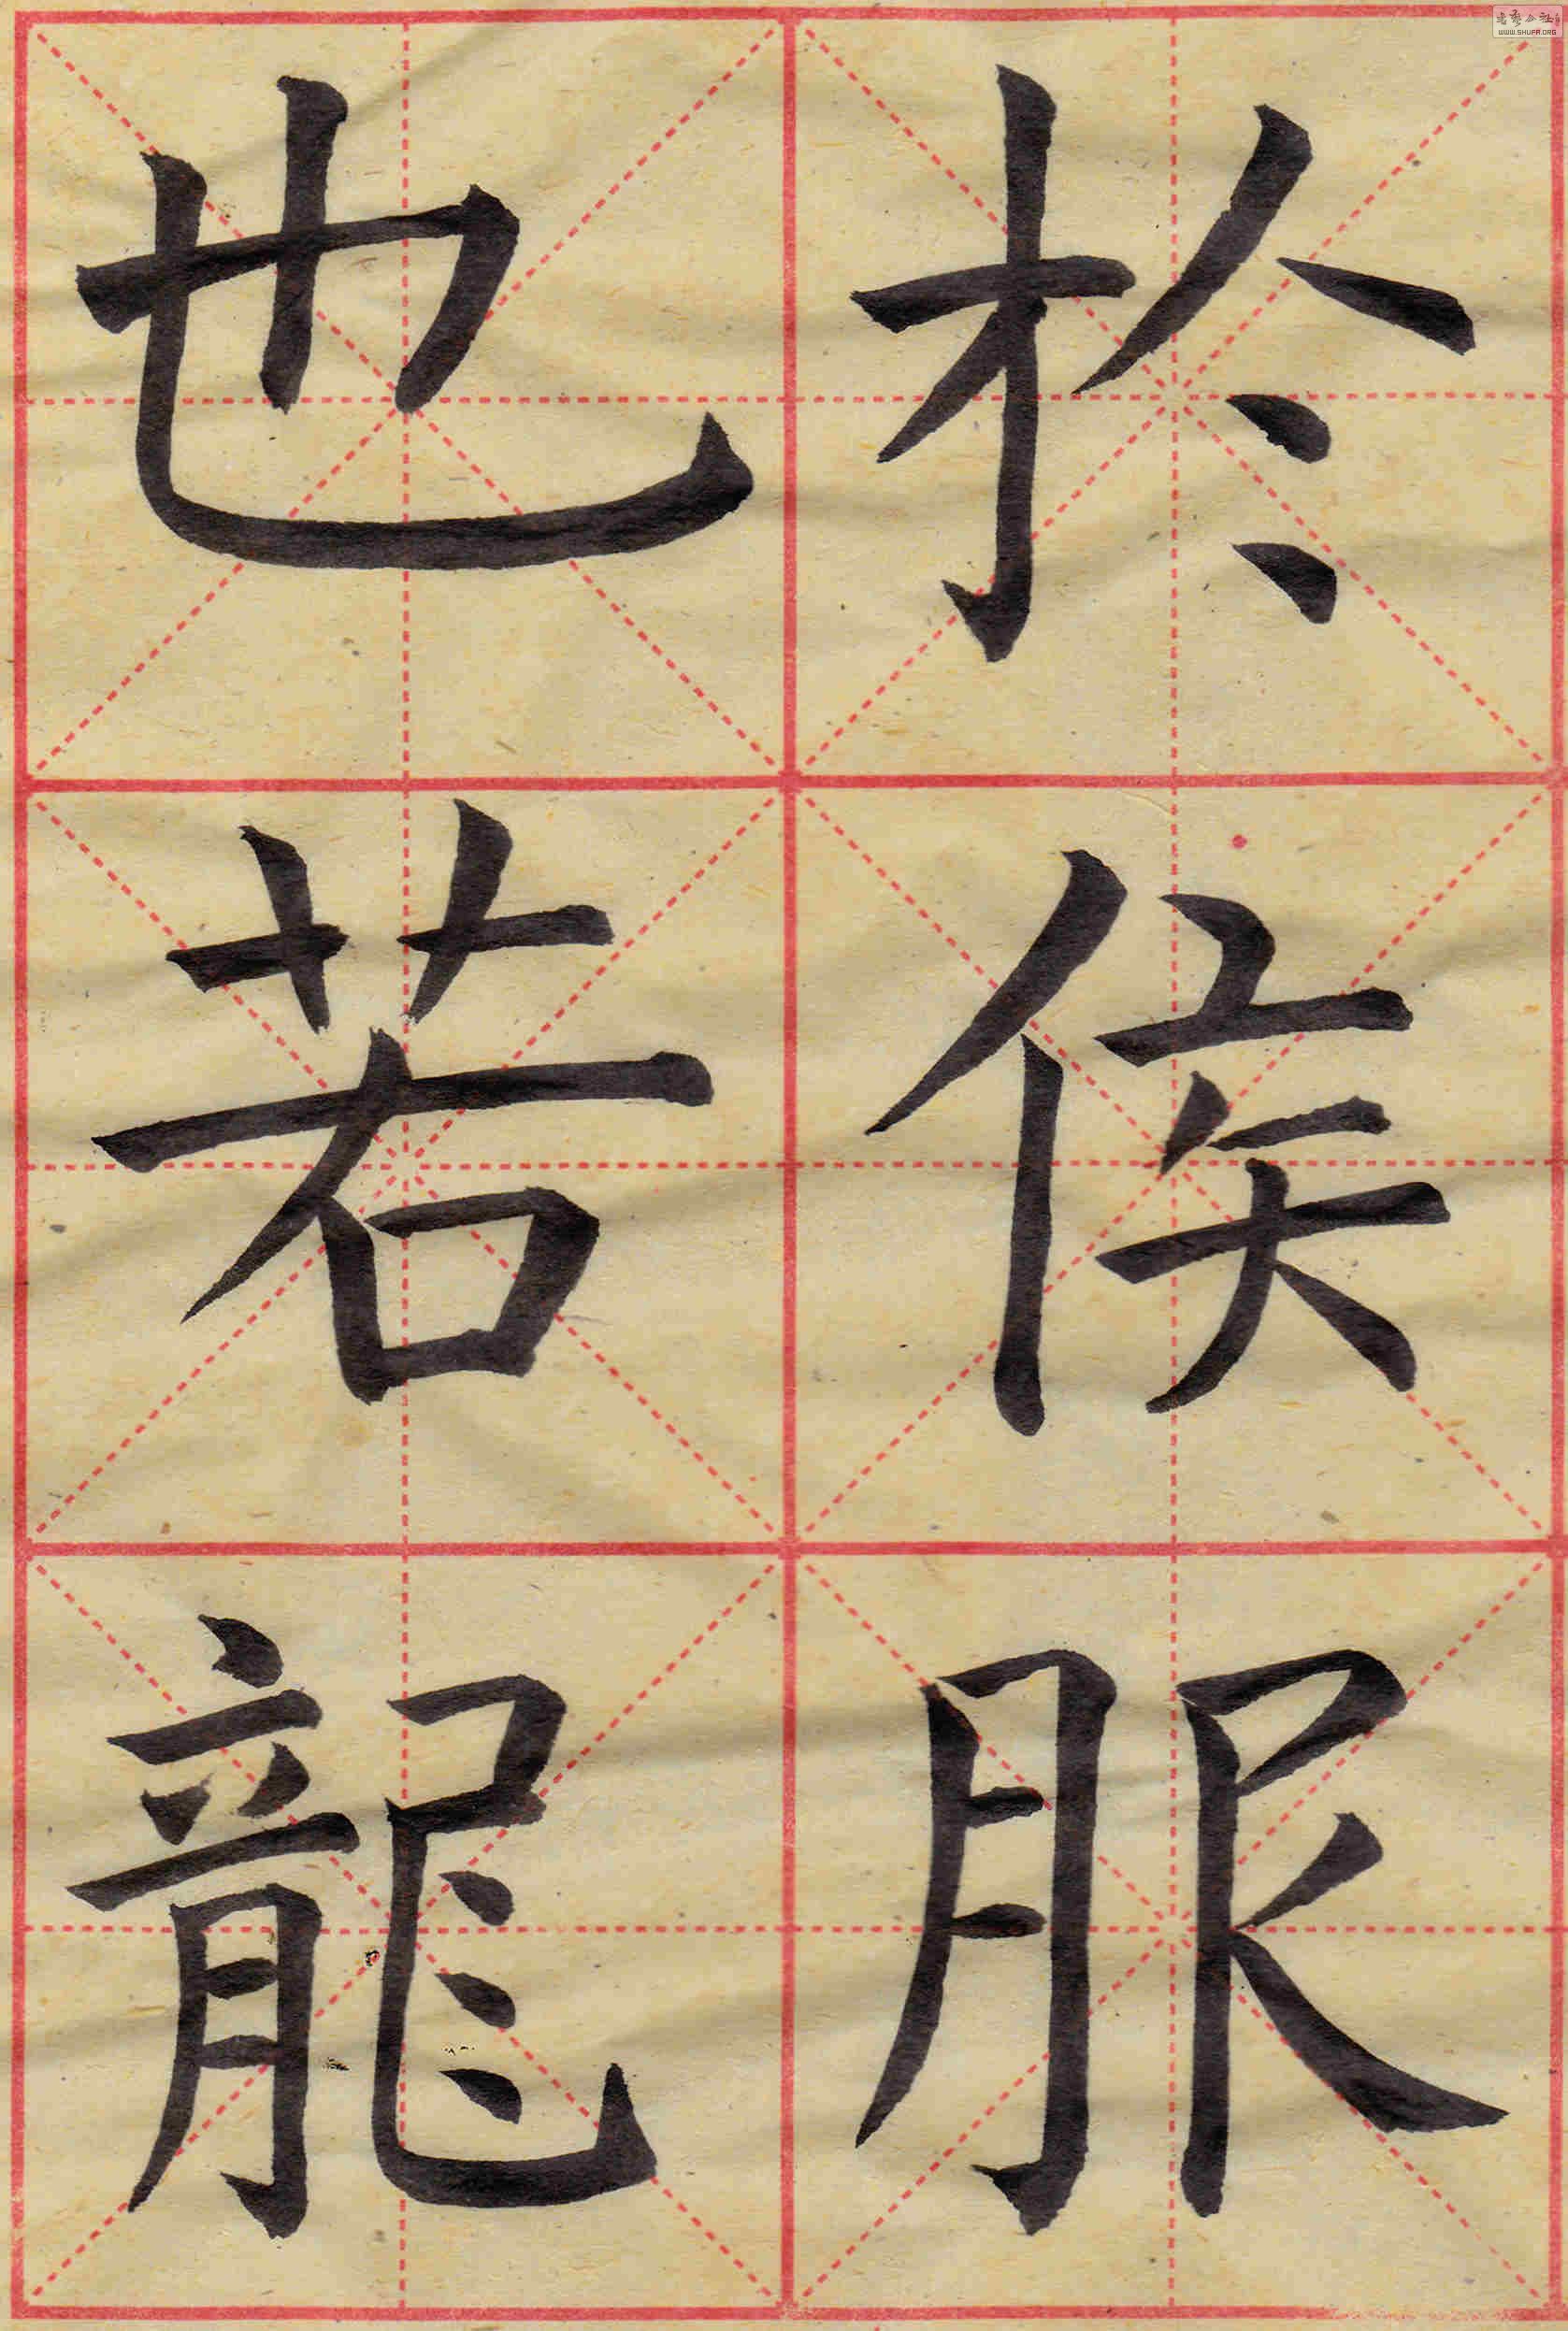 於侯服
也若龍
WWW.SHUFA.ORG